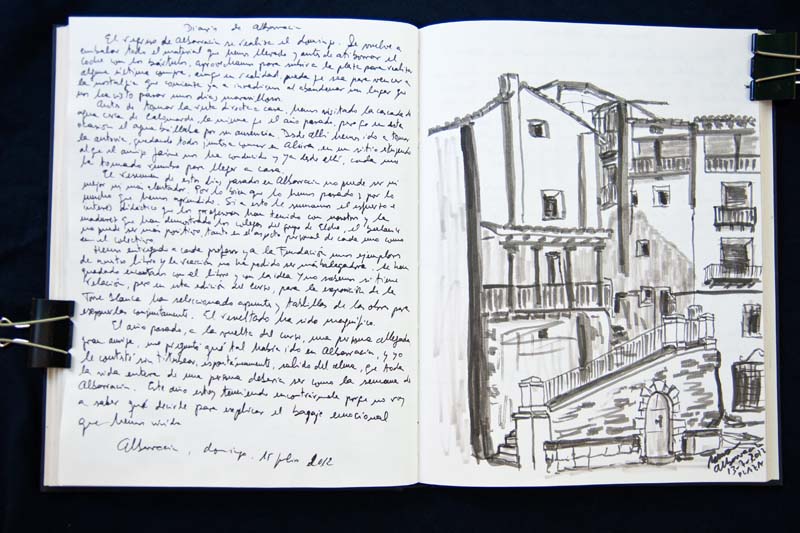 Diario de Albarracín
El regreso de Albarracín se realiza el domingo. Se vuelve a
embalar todo el material que hemos llevado y antes de atiborrar el
coche con los bártulos, aprovechamos para subir a la plaza para realizar
alguna última compra, aunq en realidad, puede q sea para vencer a
la nostalgia que comienza ya a invadirnos al abandonar un lugar que
nos ha visto pasar unos días maravillosos.
Antes de tomar la ruta directa a casa, hemos visitado la cascada de
agua cerca de Calomarde, la misma q el año pasado, pero en esta
ocasión el agua brillaba por su ausencia. Desde allí hemos ido a tomar
la autovía, quedando todos juntos a comer en un sitio
al q el amigo Jaime nos ha conducido y ya desde allí, cada uno
ha tomado rumbo para llegar a casa.
El resumen de estos días pasados en Albarracín no puede ser ni
mejor ni más alentador. Por lo bien que lo hemos pasado y por lo
mucho que hemos aprendido. Si a esto le sumamos el esfuerzo e
interés didáctico que los profesores han tenido con nosotros y la
madurez que han demostrado los colegas del grupo de Elche, el balance
no puede ser más positivo tanto en el aspecto personal de cada uno como
en el colectivo.
Hemos entregado a cada profesor y a la Fundación unos ejemplares
de nuestro libro y la reacción no ha podido ser más halagadora. Se han
quedado encantados con el libro y con la idea y no sabemos si tiene
relación, pero en esta edición del curso, para la exposición de la
Torre Blanca ha seleccionado apuntes y tablillas de la obra para
exponerlos conjuntamente. El resultado ha sido magnífico.
El año pasado, a la vuelta del curso, una persona allegada,
gran amiga, me preguntó qué tal había ido en Albarracín, y yo
le contesté sin titubear, espontáneamente, salido del alma, que toda
la vida entera de una persona debería ser como la semana de
Albarracín. Este año estoy temiendo encontrármela porque no voy
a saber qué decirle para explicar el bagaje emocional
que hemos vivido
Albarracín, domingo, 15 julio 2012
Albarracín
13-7-2012
PLAZA